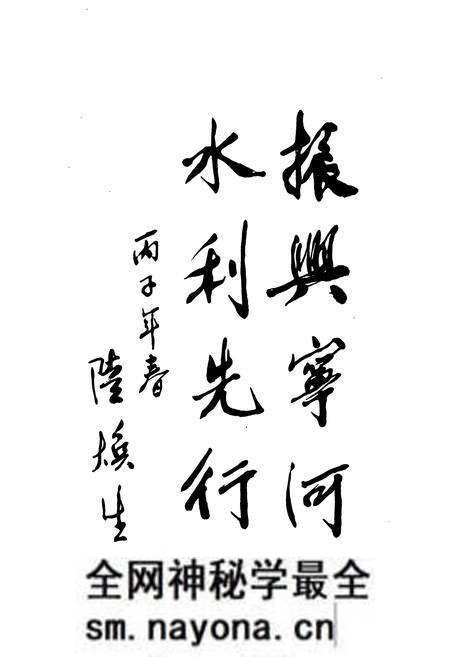 振興寧河
水利先行
丙子年春
陸焕生
全网神秘学最全
sm.nayona.cn